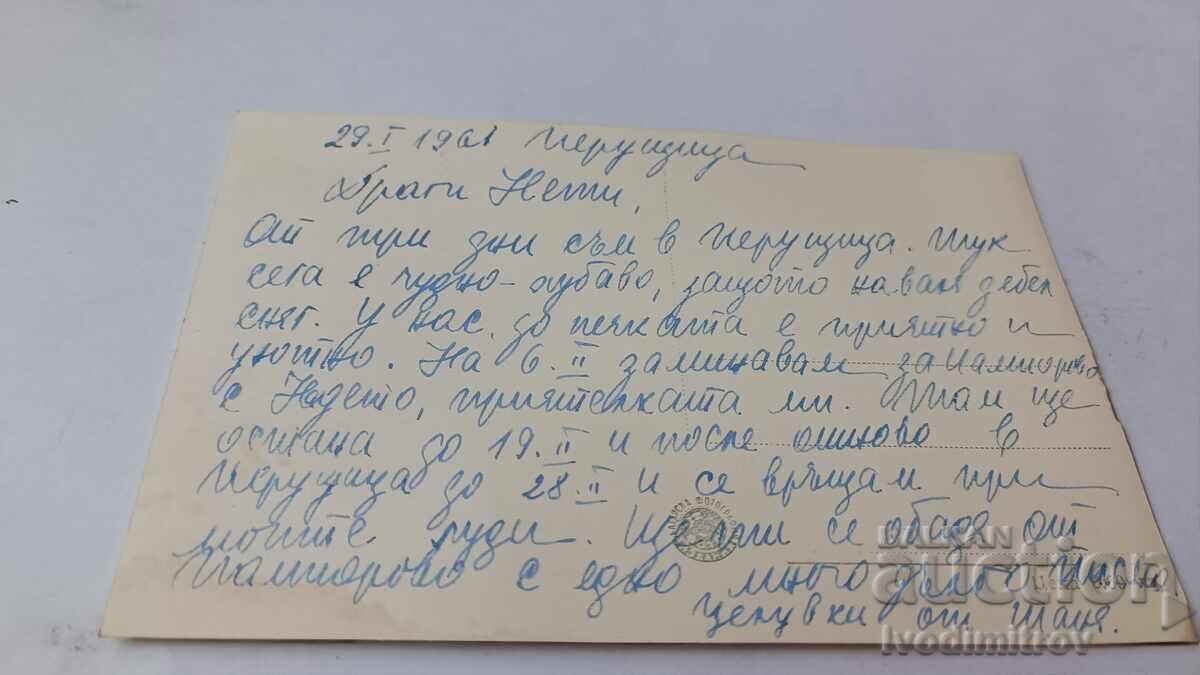 29.I 1961 Перущица
Драги Нети,
От три дни съм в Перущица. Тук
сега е чудно-хубаво, защото наваля дебел
сняг. У нас до печката е приятно и
уютно. На 6.II заминавам за Пампорово
с Надето, приятелката ми. Там ще
остана до 19.II и после отново в
Перущица до 28.II и се връщам при
моите луди. Ще ти се обадя от
Пампорово с едно много дълго писмо.
Целувки от Таня.
BALKAN
auction
Ivodimitrov